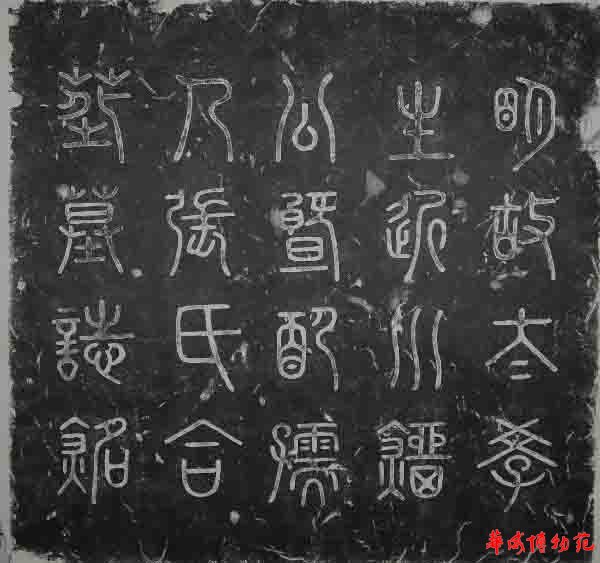 明故太學
生近川鐂
公暨配孺
人張氏合
葬墓誌銘
華海博物苑